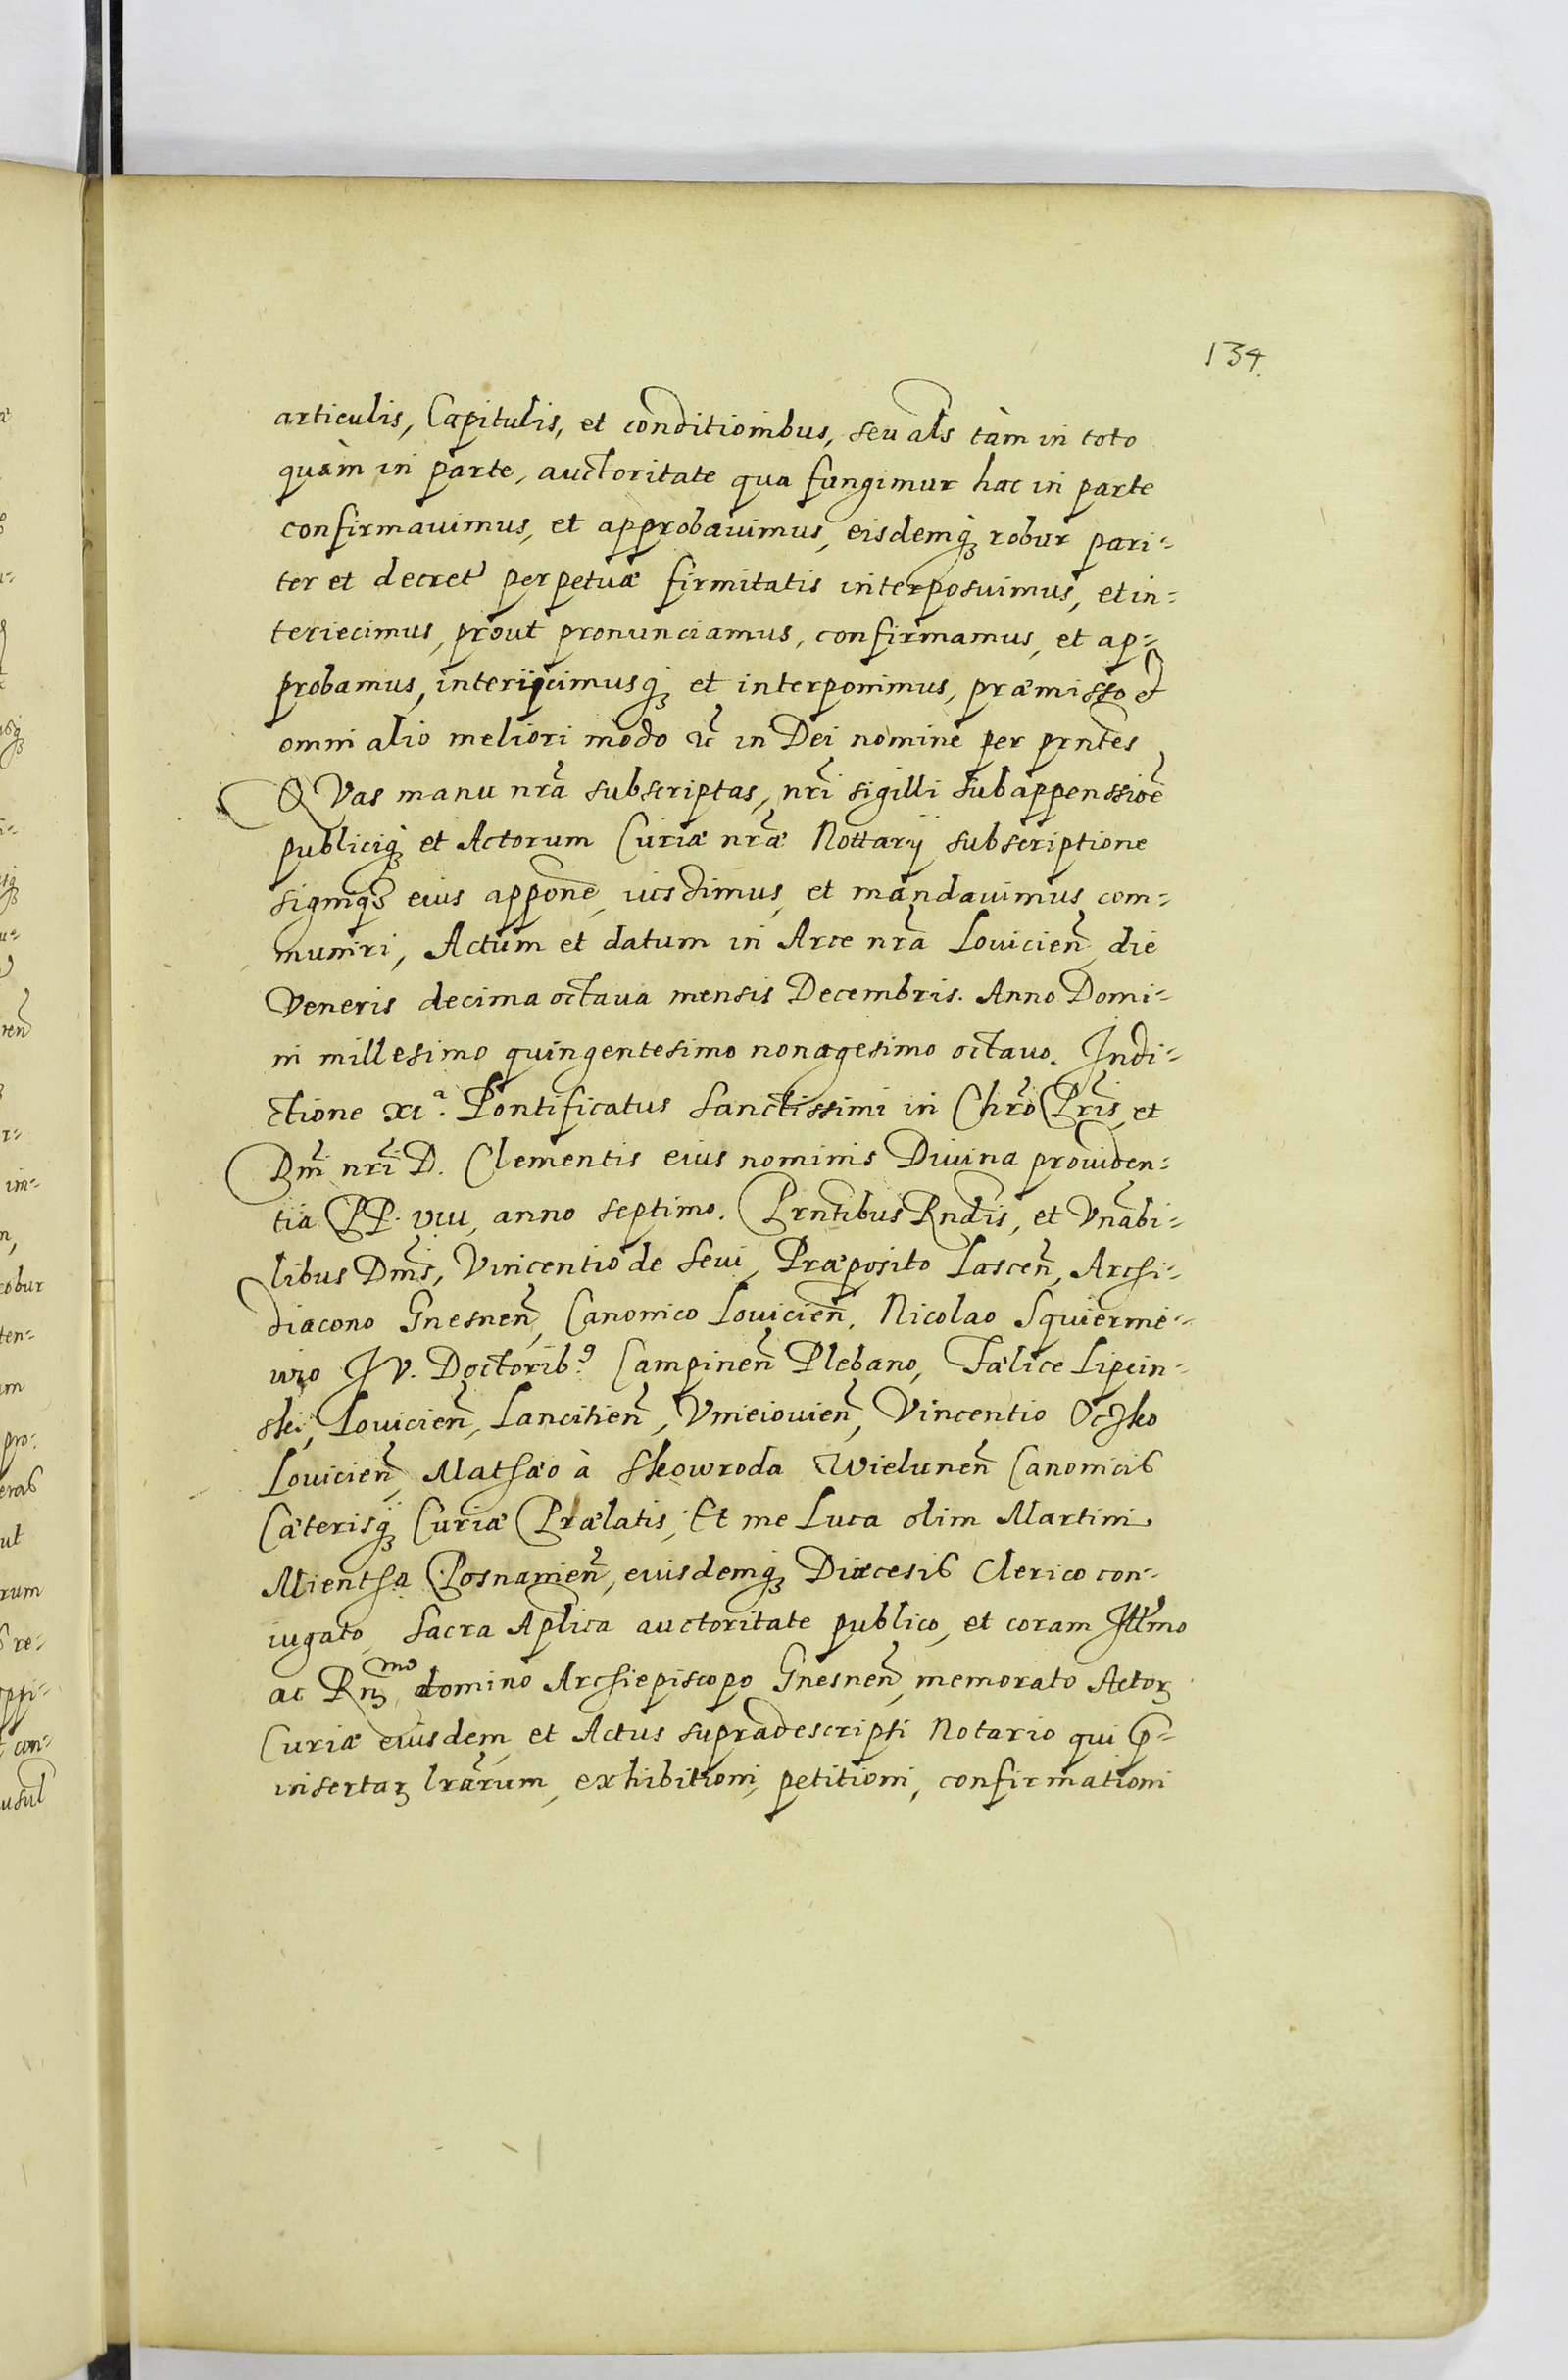 134.
articulis, Capitulis, et conditionibus, seu als tàm in toto
quàm in parte, auctoritate qua fungimur hac in parte
confirmauimus, et approbauimus, eisdemq́ꝫ robur pari-
ter et decret' perpetuæ firmitatis interposuimus, et in-
teriecimus, prout pronunciamus, confirmamus, et ap-
probamus, interijcimusq́ꝫ et interponimus, præmisso et
omni alio meliori modo &c̃ in Dei nomine per prñtes
QVas manu nr̃a subscriptas, nr̃i sigilli subappenssiõe
publiciq́ꝫ et Actorum Curiæ nr̃æ Nottarij subscriptione
signiq́ꝫ eius appone, iussimus, et mandauimus com-
muniri, Actum et datum in Arce nr̃a Louicien̄, die
Veneris decima octaua mensis Decembris. Anno Domi-
ni millesimo quingentesimo nonagesimo octauo. Indi-
ctione xiª. Pontificatus Sanctissimi in Chr̃o Pr̃is, et
Dn̄i nr̃i D. Clementis eius nominis Diuina prouiden-
tia PP. viii, anno septimo. Prñtibus Rndis, et Vnãbi-
libus Dm̃s, Vincentio de Seui, Præposito Lascen̄, Archi-
diacono Gnesnen̄, Canonico Louicien̄, Nicolao Squiermie-
wio I V. Doctorib⁹ Campinen̄ Plebano, Fælice Lipcin-
ski, Louicien̄, Lancitien̄, Vnieiouien̄, Vincentio Ocsko
Louicien̄, Mathæo à Skowroda Wielunen̄ Canonicis
Cæterisq́ꝫ Curiæ Prælatis; Et me Luca olim Martini
Mientha Posnanien̄, eiusdemq́ꝫ Diœcesis Clerico con-
iugato, Sacra Aplica auctoritate publico, et coram Illmo
ac Rnꝫ mo domino Archiepiscopo Gnesnen̄, memorato Actoꝝ
Curiæ eiusdem et Actus supradescripti Notario qui p̃-
insertaꝝ lr̃arum, exhibitioni, petitioni, confirmationi